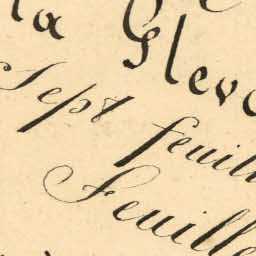 la Gleva
Sept feuill
Feuille